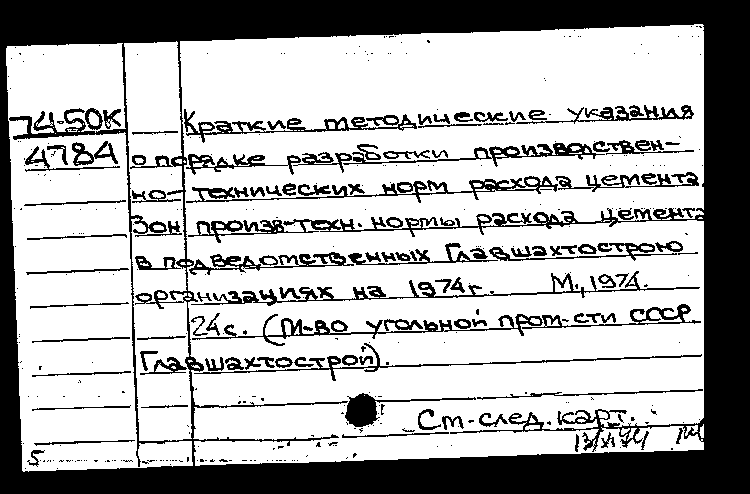 74-50К Краткие методические указания
4784 о порядке разработки производствен-
но-технических норм расхода цемента.
Зон произв-техн. нормы расхода цемента
в подведомственных Главшахтострою
организациях на 1974г. М., 1974.
24с. (М-во угольной пром-сти СССР.
Главшахтострой).
Ст-след. карт.
5